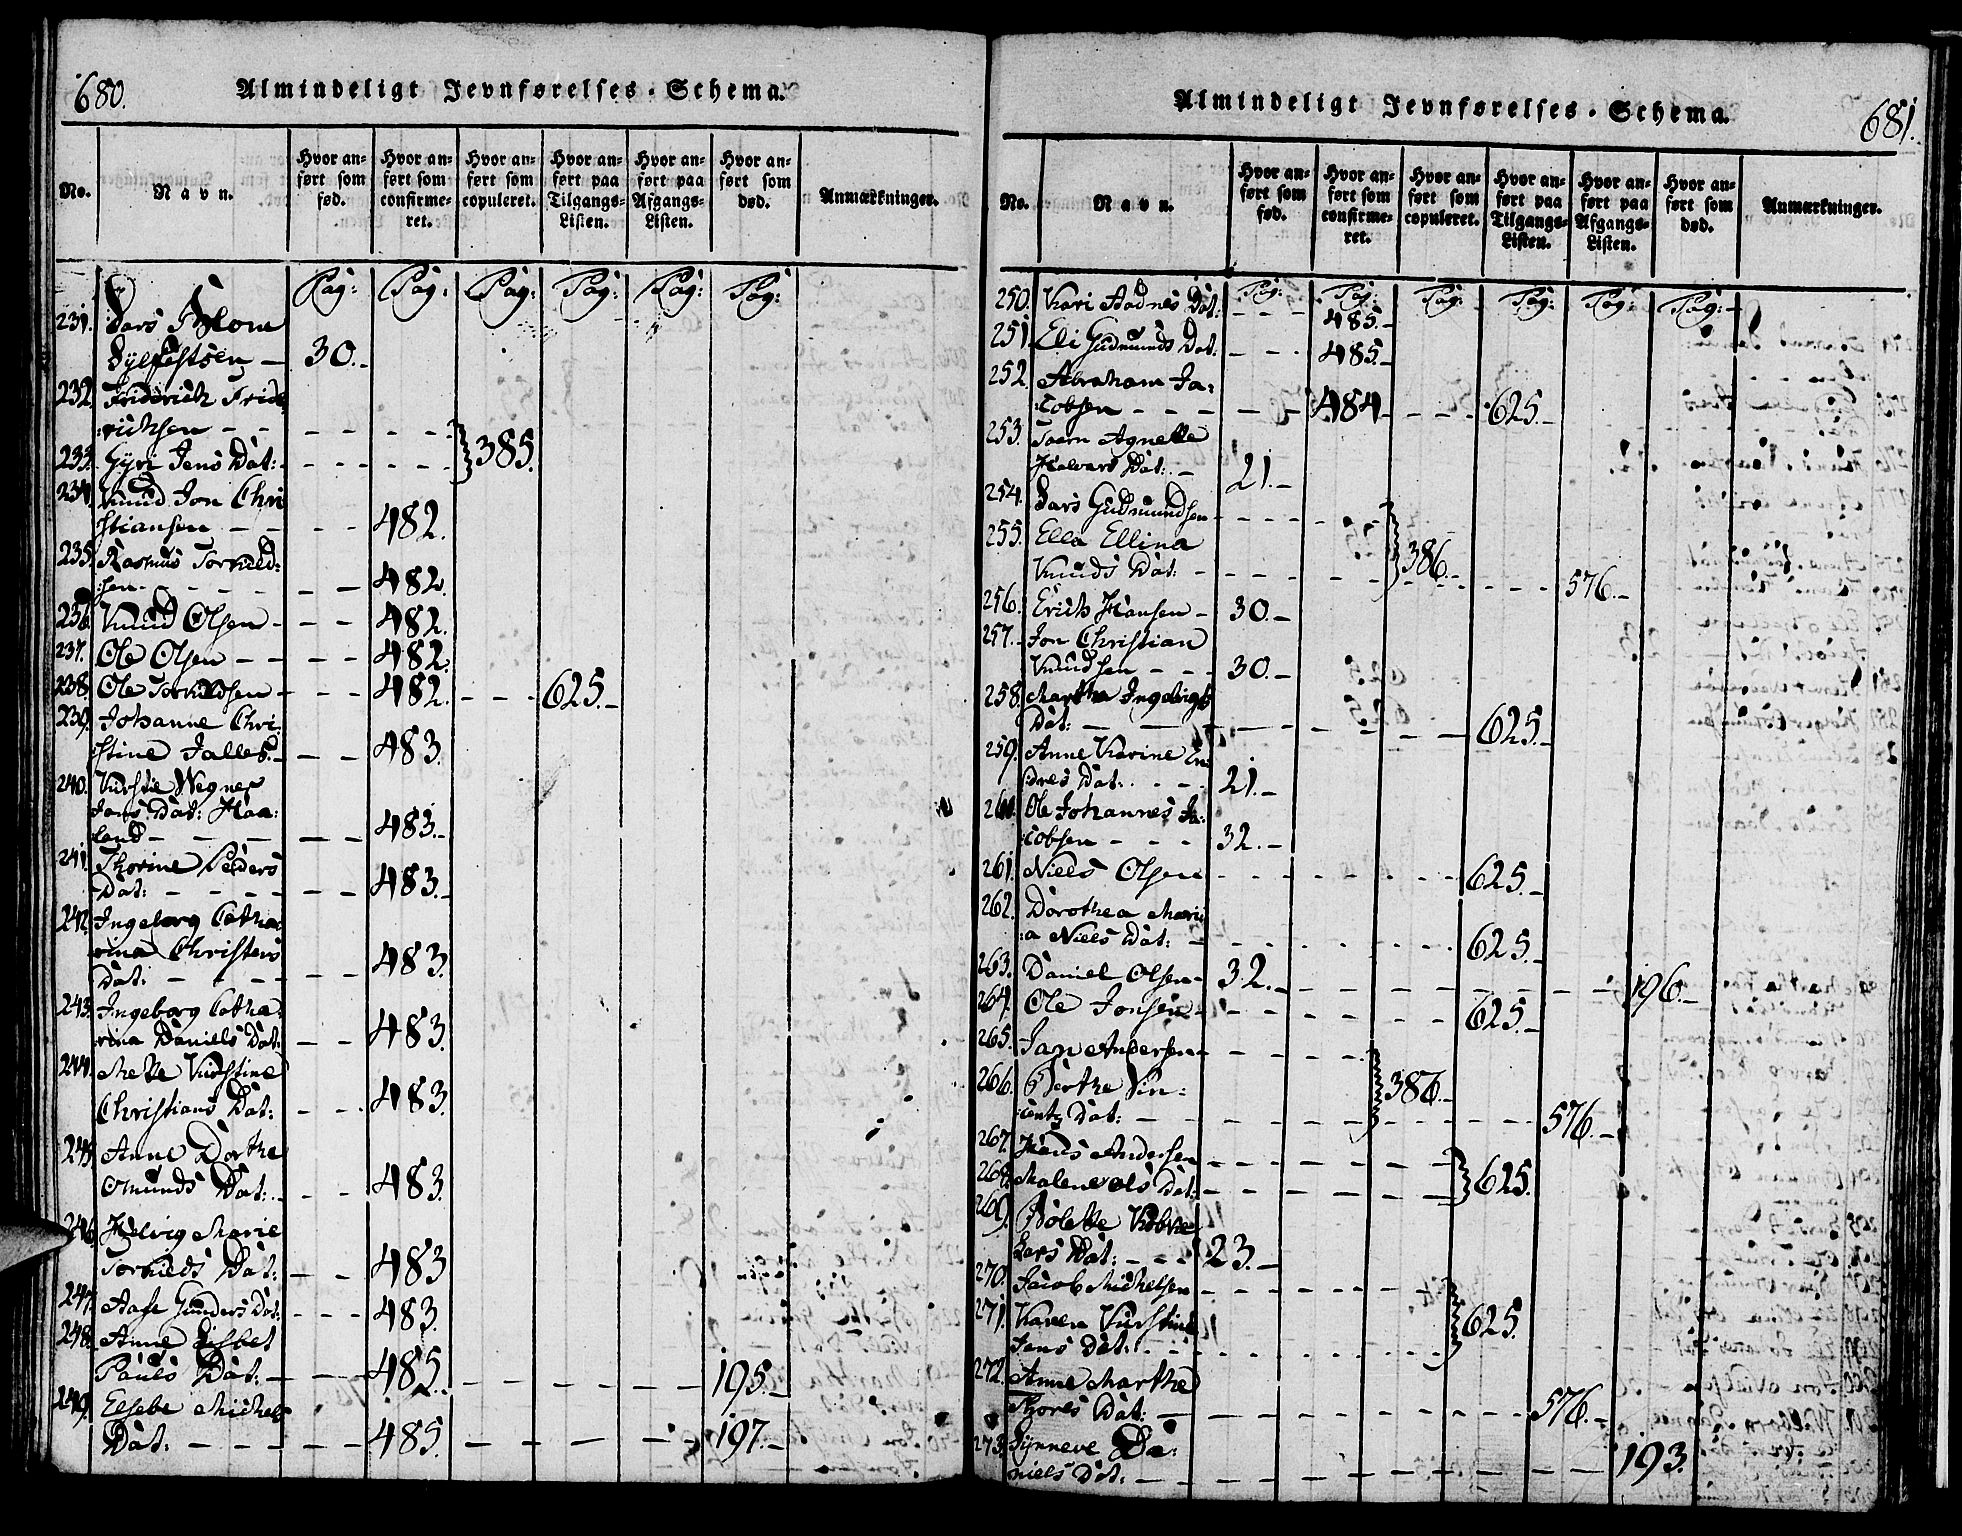 680.
Almindeligt Jevnførelses-Schema.
No.
Navn.
Hvor anført som fød.
Hvor anført som confirmeret.
Hvor anført som copuleret.
Hvor anført paa Tilgangs-Listen.
Hvor anført paa Afgangs-Listen.
Hvor anført som død.
Anmærkninger.
Pag: Pag: Pag: Pag: Pag: Pag:
231. Lars Blom
Sylfestsen — 30.-
232. Friderich Fride
richsen - - - - - -
233. Gyri Jens Dat: - - - - - } 385.
234. Knud Jon Chri
stiansen - - - - 482.
235. Rasmus Torkild:
sen - - - - - 482.
236. Knud Olsen - - - 482.
237. Ole Olsen - - - - 482.
238. Ole Torkildsen - - - 482. - - - 625.-
239. Johanne Chri:
stine Jalles. - - - 483.
240. Kirstie Wegner
Jans Dat: Haa:
land - - - - - 483.-
241. Thorine Peders
Dat: - - - - - 483.-
242. Ingeborg Catha:
rina Christens
Dat: - - - - - 483.
243. Ingeborg Catha:
rina Daniels Dat: - - 483.
244. Mette Kirstine
Christians Dat: - - 483.
245. Anne Dorthe
Omunds Dat: - - - 483.
246. Helvig Marie
Torkilds Dat: - - 483
247. Aase Gunders Dat: - - - 483.
248. Anne Lisbet
Pauls Dat: - - - 485.- - - - - - 195.-
249. Elsebe Michels
Dat: - - - - - - 485. - - - - - 197.-
681.
Almindeligt Jevnførelses-Schema.
No.
Navn.
Hvor anført som fød.
Hvor anført som confirmeret.
Hvor anført som copuleret.
Hvor anført paa Tilgangs-Listen.
Hvor anført paa Afgangs-Listen.
Hvor anført som død.
Anmærkninger.
Pag: Pag: Pag: Pag: Pag: Pag:
250. Kari Aadnes Dat: - - - 485.-
251. Eli Gudmunds Dat: - - - 485.-
252. Abraham Ja:
cobsen - - - - - - 484 - - - 625.-
253. Taarn Agnette
Halvars Dat: - 21.-
254. Lars Gudmundsen - - - - - -
255. Ella Ellina
Knuds Dat: - - - - - } 386.- - - - 576.-
256. Erich Hansen - 30.-
257. Jon Christian
Knudsen - - - 30.-
258. Martha Ingebrigts
Dat: - - - - - - - 625.-
259. Anne Karine En
dres Dat: - - - 21.-
260. Ole Johannes Ja:
cobsen - - - 32.-
261. Niels Olsen - - - - - - 625.-
262. Dorothea Mari
:a Niels Dat: - - - - - - 625.-
263. Daniel Olsen - 32.- - - - - - - 196.-
264. Ole Jonsen - - - - - - 625.-
265. Jan Andersen - - - - -
266. Berthe Vin:
centz Dat: - - - - - } 386.- - - - 576.-
267. Hans Andersen - - - - - -
268. Malene Ols Dat: - - - - - } 625.
269. Bolette
Lars Dat: - - - 23.-
270. Jacob Michelsen - - - - - -
271. Karen Kirstine
Jens Dat: - - - - - - } 625.
272. Anne Marthe
Thores Dat: - - - - - - - 576.-
273. Synneve Da:
niels Dat: - - - - - - - 193.